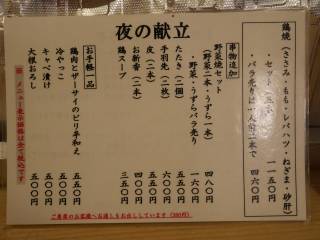 夜の献立
鶏焼（ささみ・もも・レバハツ・ねぎま・砂肝）
・セット（五本） 一一五〇円
・バラ売りは一人前二本で 四六〇円
串物追加
野菜焼セット 四八〇円
（野菜二本・うずら一本）
・野菜・うずらバラ売り 一六〇円
たたき（二個） 五五〇円
手羽先（二枚） 六〇〇円
皮（二本） 五五〇円
お新香（二本）
鶏スープ 三五〇円
お手軽一品
鶏肉とザーサイのピリ辛和え 五五〇円
冷やっこ 五五〇円
キャベ漬け 五〇〇円
大根おろし 五〇〇円
メニュー表示価格は全て税込です
ご希望のお客様へお通しをお出ししています（300円）